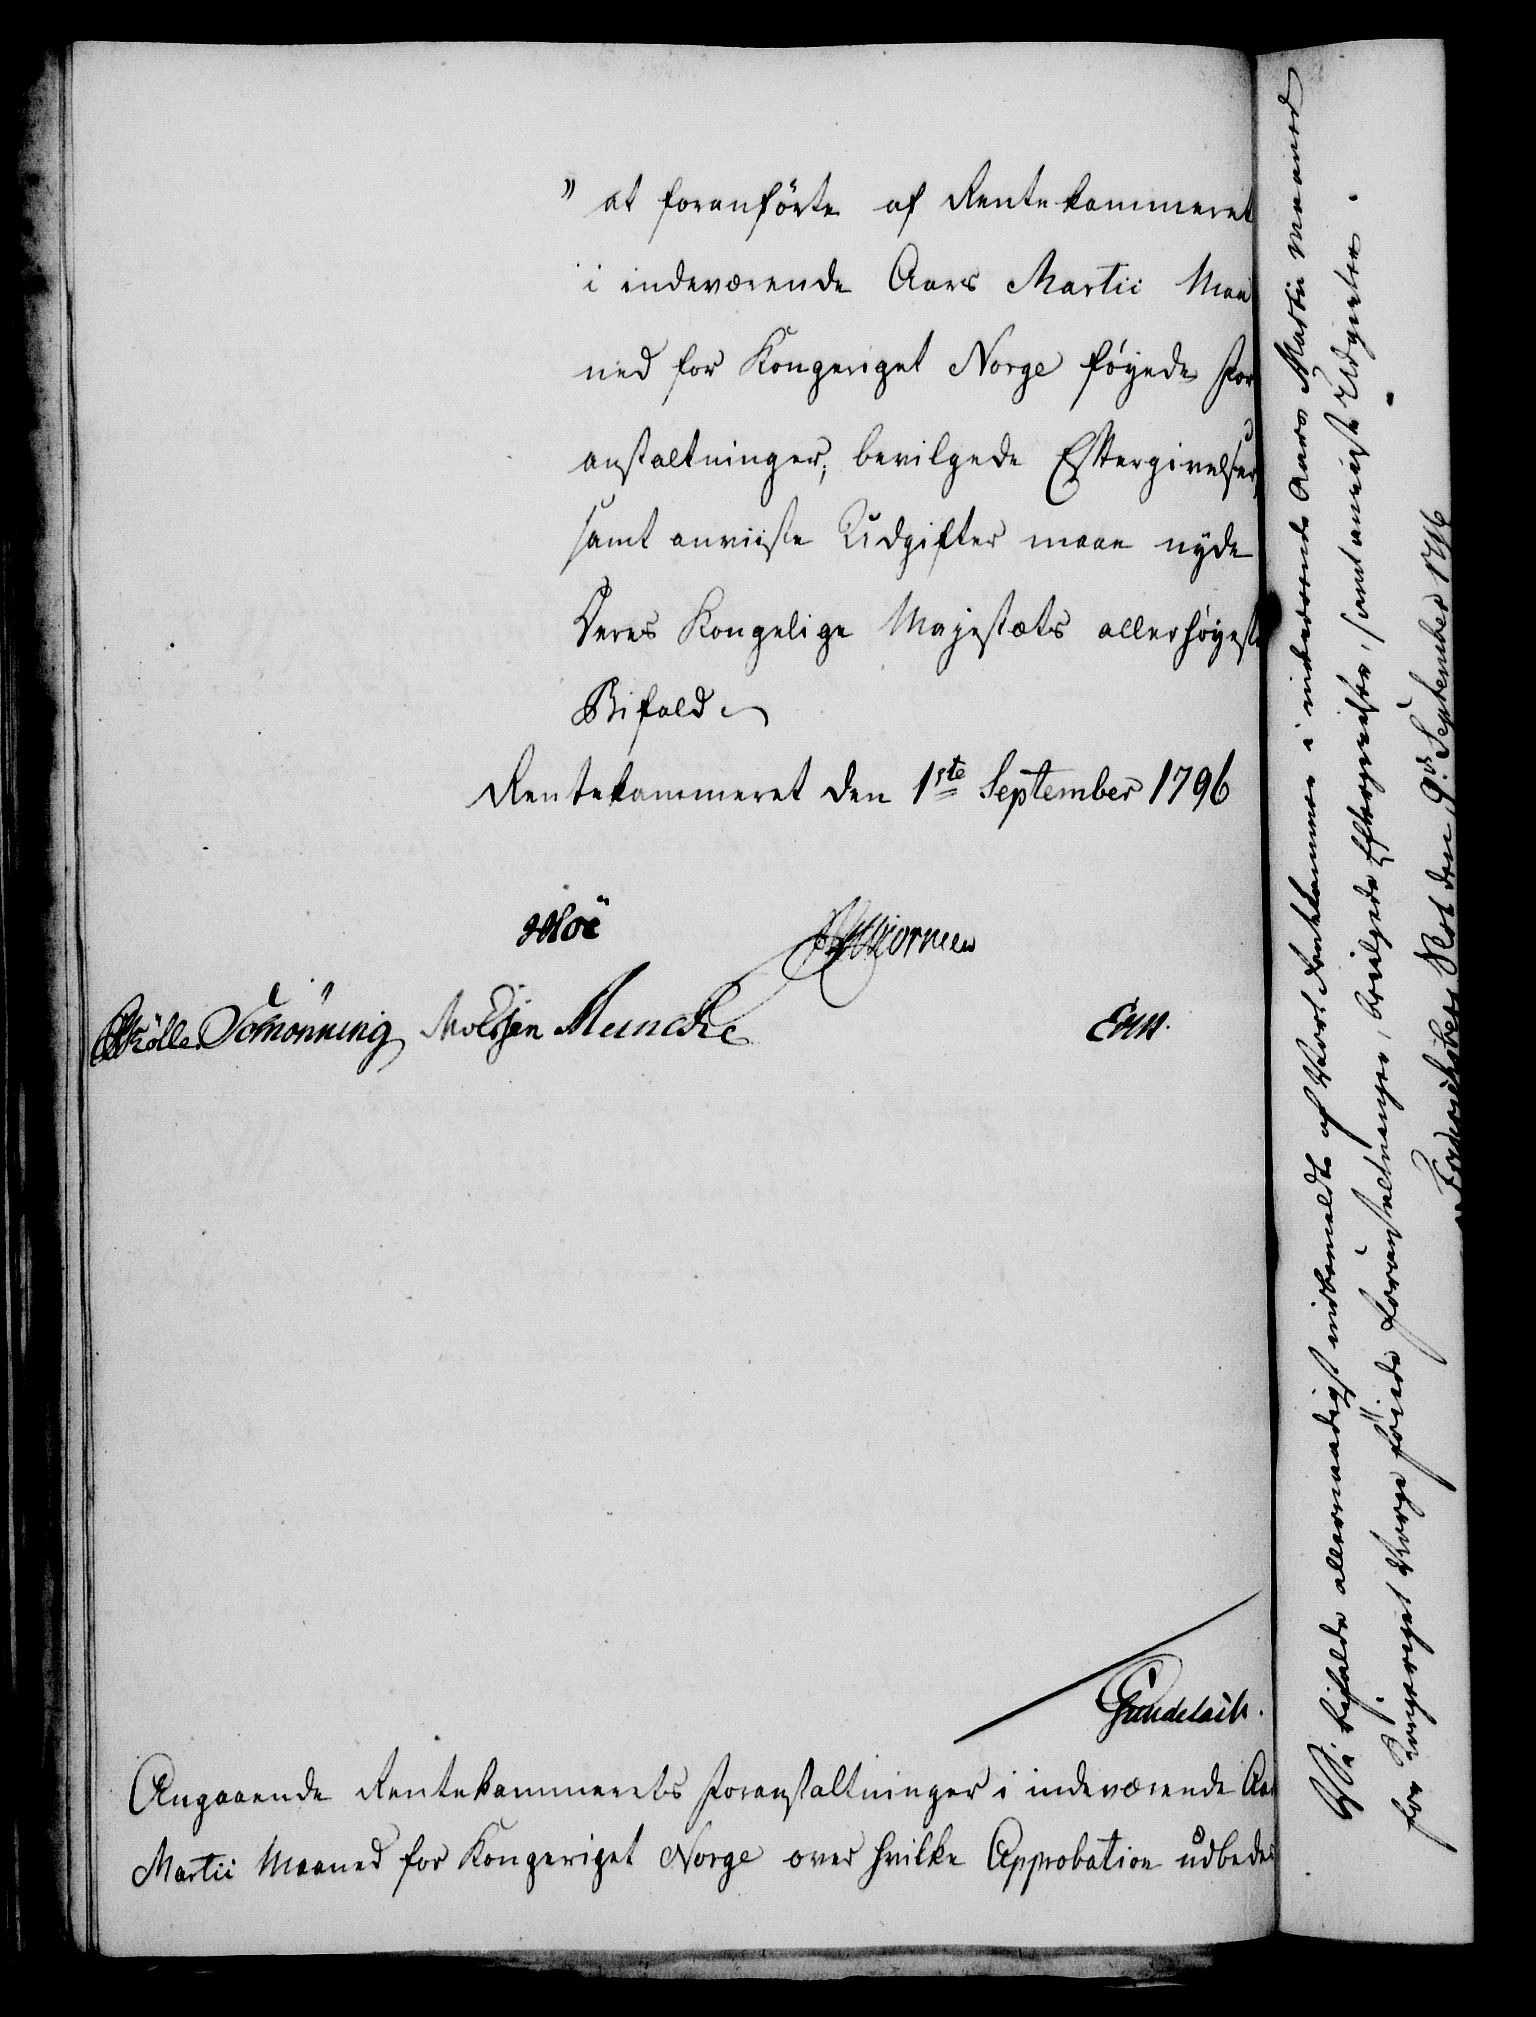 " at foranførte af Rentekammeret
i indeværende Aars Martii Maa
ned for Kongeriget Norge føyede For
anstaltninger, bevilgede Eftergivelser,
samt anviiste Udgifter maae nyde
Deres Kongelige Majestæts allerhøyeste
Bifald.
Rentekammeret den 1ste September 1796
Schønning Muncke
Gundelach.
Angaaende Rentekammerets Foranstaltninger i indeværende Aar
Martii Maaned for Kongeriget Norge over hvilke Approbation udbedes
Vi bifalde allernaadigst indbemeldte af Vort Rentekammer i indeværende Aars Martii Maaned
for Kongeriget Norge føiede Foranstaltninger, bevilgede Eftergivelser, samt anviiste Udgivter.
Frederichsberg Slot den 9de September 1796